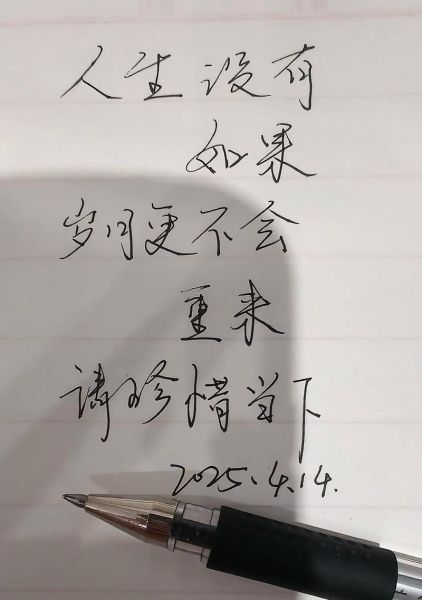 人生没有
如果
岁月更不会
重来
请珍惜当下
2025.4.14.